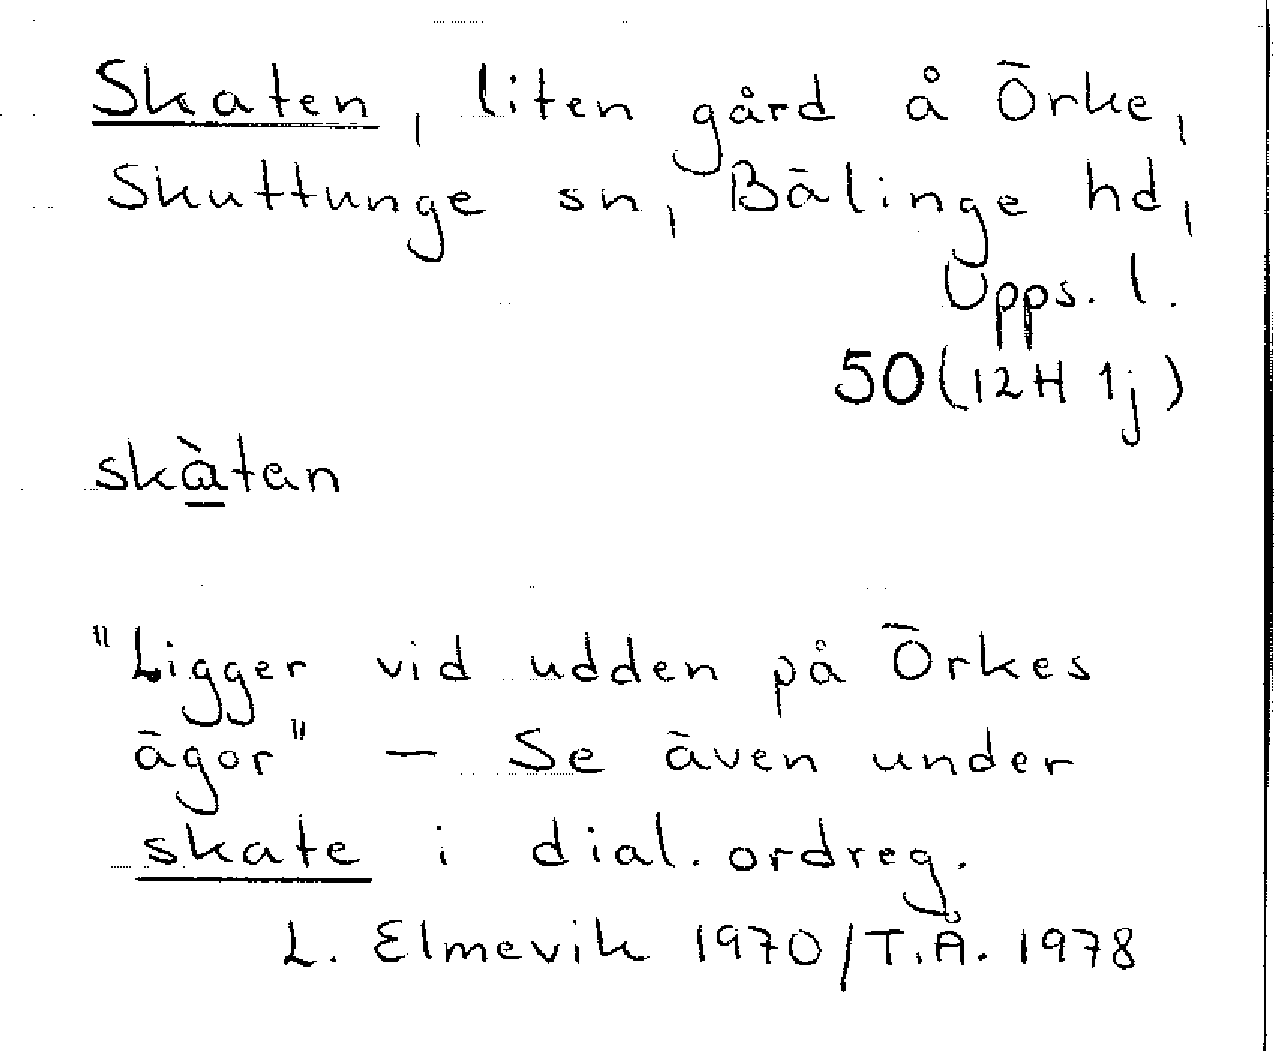 Skaten, liten gård å Örke,
Skuttunge sn, Bälinge hd,
Upps. l.
50 (12H 1j)
skàtan
"Ligger vid udden på Örkes
ägor" – Se även under
skate i dial. ordreg.
L. Elmevik 1970/T.Å. 1978